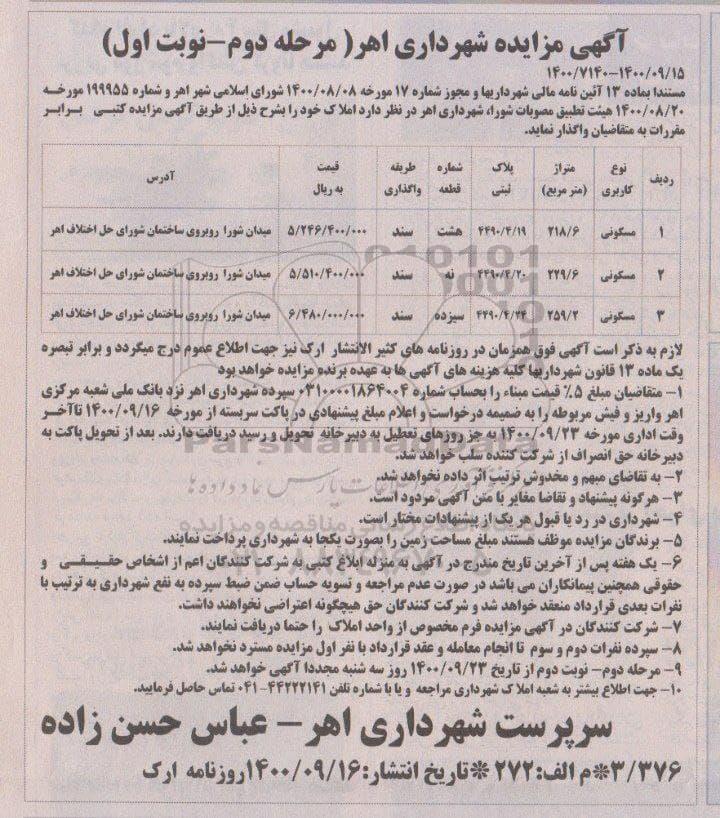 آگهی مزایده شهرداری اهر( مرحله دوم-نوبت اول)
۱۴۰۰/۷۱۴۰-۱۴۰۰/۰۹/۱۵
مستندا بماده ۱۳ آئین نامه مالی شهرداریها و مجوز شماره ۱۷ مورخه ۱۴۰۰/۰۸/۰۸ شورای اسلامی شهر اهر و شماره ۱۹۹۹۵۵ مورخه
۱۴۰۰/۰۸/۲۰ هیئت تطبیق مصوبات شورا، شهرداری اهر در نظر دارد املاک خود را بشرح ذیل از طریق آگهی مزایده کتبی برابر
مقررات به متقاضیان واگذار نماید.
ردیف نوع کاربری متراژ (متر مربع) پلاک ثبتی شماره قطعه طریقه واگذاری قیمت به ریال آدرس
۱ مسکونی ۲۱۸/۶ ۴۴۹۰/۴/۱۹ هشت سند ۵/۲۴۶/۴۰۰/۰۰۰ میدان شورا روبروی ساختمان شورای حل اختلاف اهر
۲ مسکونی ۲۲۹/۶ ۴۴۹۰/۴/۲۰ نه سند ۵/۵۱۰/۴۰۰/۰۰۰ میدان شورا روبروی ساختمان شورای حل اختلاف اهر
۳ مسکونی ۲۵۹/۲ ۴۴۹۰/۴/۲۴ سیزده سند ۶/۴۸۰/۰۰۰/۰۰۰ میدان شورا روبروی ساختمان شورای حل اختلاف اهر
لازم به ذکر است آگهی فوق همزمان در روزنامه های کثیر الانتشار ارک نیز جهت اطلاع عموم درج میگردد و برابر تبصره
یک ماده ۱۳ قانون شهرداریها کلیه هزینه های آگهی ها به عهده برنده مزایده خواهد بود
۱- متقاضیان مبلغ ۵٪ قیمت مبناء را بحساب شماره ۰۳۱۰۰۰۰۱۸۶۴۰۰۴ سپرده شهرداری اهر نزد بانک ملی شعبه مرکزی
اهر واریز و فیش مربوطه را به ضمیمه درخواست و اعلام مبلغ پیشنهادی در پاکت سربسته از مورخه ۱۴۰۰/۰۹/۱۶ تاآخر
وقت اداری مورخه ۱۴۰۰/۰۹/۲۳ به جز روزهای تعطیل به دبیرخانه تحویل و رسید دریافت دارند. بعد از تحویل پاکت به
دبیرخانه حق انصراف از شرکت کننده سلب خواهد شد.
۲- به تقاضای مبهم و مخدوش ترتیب اثر داده نخواهد شد.
۳- هرگونه پیشنهاد و تقاضا مغایر با متن آگهی مردود است.
۴- شهرداری در رد یا قبول هر یک از پیشنهادات مختار است.
۵- برندگان مزایده موظف هستند مبلغ مساحت زمین را بصورت یکجا به شهرداری پرداخت نمایند.
۶- یک هفته پس از آخرین تاریخ مندرج در آگهی به منزله ابلاغ کتبی به شرکت کنندگان اعم از اشخاص حقیقی و
حقوقی همچنین پیمانکاران می باشد در صورت عدم مراجعه و تسویه حساب ضمن ضبط سپرده به نفع شهرداری به ترتیب با
نفرات بعدی قرارداد منعقد خواهد شد و شرکت کنندگان حق هیچگونه اعتراضی نخواهند داشت.
۷- شرکت کنندگان در آگهی مزایده فرم مخصوص از واحد املاک را حتما دریافت نمایند.
۸- سپرده نفرات دوم و سوم تا انجام معامله و عقد قرارداد با نفر اول مزایده مسترد نخواهد شد.
۹- مرحله دوم- نوبت دوم از تاریخ ۱۴۰۰/۰۹/۲۳ روز سه شنبه مجددا آگهی خواهد شد.
۱۰- جهت اطلاع بیشتر به شعبه املاک شهرداری مراجعه و یا با شماره تلفن ۴۴۲۲۲۱۴۱-۰۴۱ تماس حاصل فرمایید.
سرپرست شهرداری اهر- عباس حسن زاده
۳/۳۷۶*م الف:۲۷۲ *تاریخ انتشار:۱۴۰۰/۰۹/۱۶روزنامه ارک